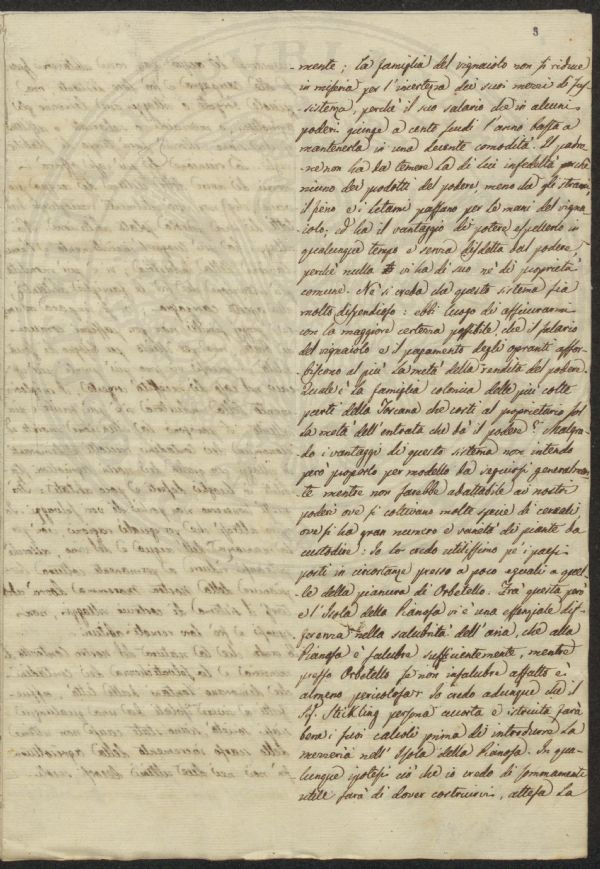 8
mente; la famiglia del vignaiolo non si riduce
in miseria per l'incertezza dei suoi mezzi di sus-
sistema, perchè il suo salario che in alcuni
poderi giunge a cento scudi l'anno basta a
mantenerla in una decente comodità. Il padro-
ne non ha da temere la di lui infedeltà perchè
niuno dei prodotti del podere, meno che gli strami,
il fieno e i letami passano per le mani del vigna-
iolo; ed ha il vantaggio di potere espellerlo in
qualunque tempo e senza disdetta dal podere,
perchè nulla vi ha di suo nè di proprietà
comune. Nè si creda che questo sistema sia
molto dispendioso: ebbi luogo di assicurarmi
con la maggiore certezza possibile, che il salario
del vignaiolo e il pagamento degli opranti assor-
biscono al più la metà della rendita del podere.
Quale è la famiglia colonica delle più colte
parte della Toscana che costi al proprietario sol
la metà dell'entrata che dà il podere? Malgra-
do i vantaggi di questo sistema non intendo
però proporlo per modello da seguirsi generalmen-
te mentre non sarebbe adattabile ai nostri
poderi ove si coltivano molte specie di cereali
ove si ha gran numero e varietà di piante da
custodire: Io lo credo utilissimo pe i paesi
posti in circostanze presso a poco eguali a quel-
le della pianura di Orbetello. Frà questa però
e l'Isola della Pianosa vi è una essenziale dif-
ferenza nella salubrità dell'aria, che alla
Pianosa è salubre sufficientemente, mentre
presso Orbetello se non insalubre affatto è
almeno pericolosa. Io credo adunque che il
Sig. Stickling persona accorta e istruita farà
bene i suoi calcoli prima di introdurre la
mezzeria nell'Isola della Pianosa. In qua-
lunque ipotesi ciò che io credo di sommamente
utile sarà di dover costruirvi, attesa la